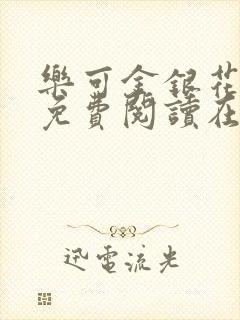 樂可金銀花
免費閱讀在
迅電流光